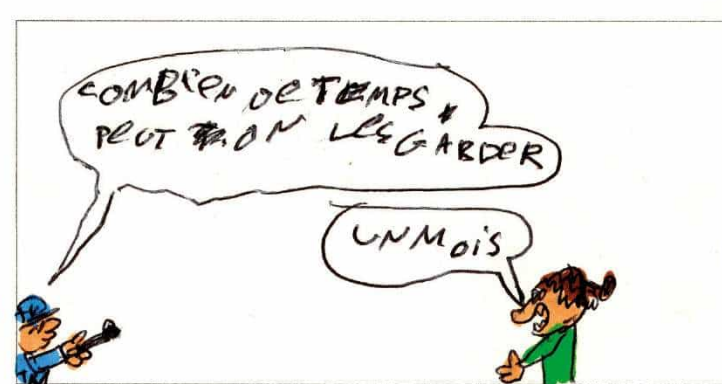 COMBIEN DE TEMPS
PEUT ON LES GARDER
UN MOIS